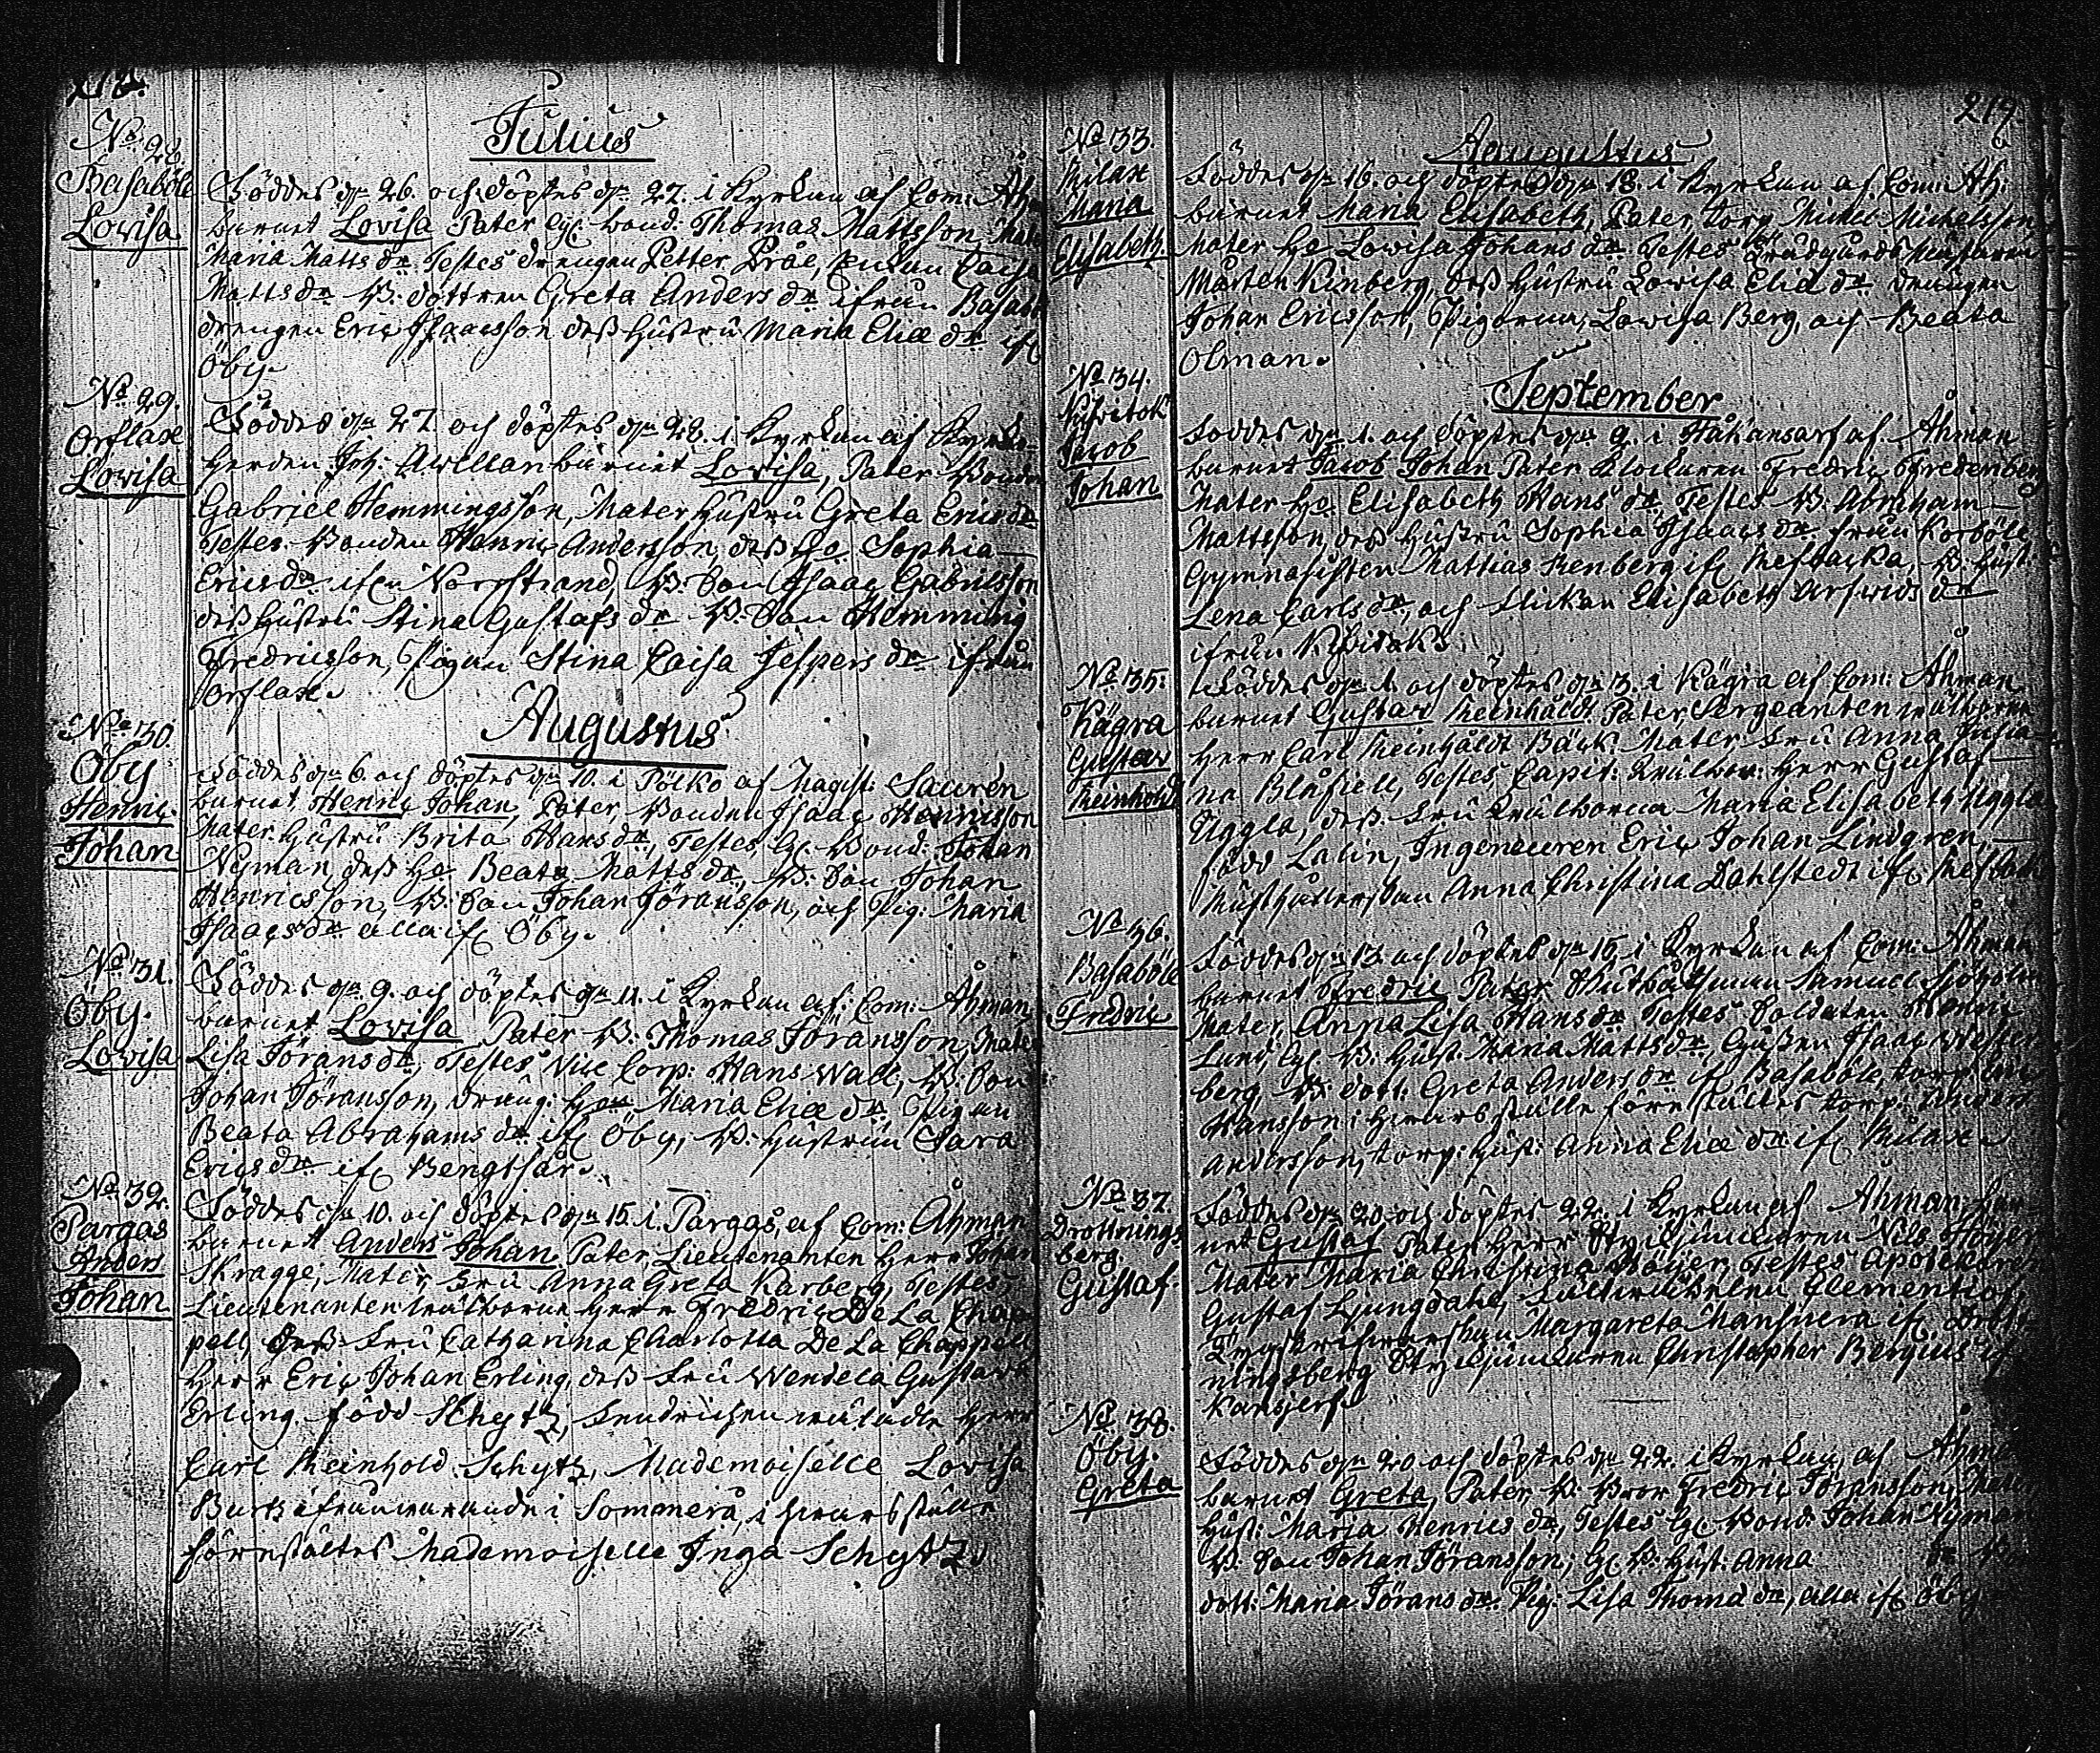 No 28.
Basaböle
Lovisa
Julius
Föddes dn 26. och döptes dn 27. i Kyrkan af Com: Åh
barnet Lovisa Pater Bond. Thomas Mattsson, Mat
Maria Matts dr. Testes drengen Petter Pråe, Enkan Caisa
Matts dr B: dottren Greta Anders dr ifrån Basab
drengen Eric Isaacsson dess hustru Maria Eliæ dr if
Öby.
No 29.
Orslax
Lovisa
Föddes dn 27 och döptes dn 28. i Kyrkan af Kyrko
herden Joh: Avellan barnet Lovisa, Pater Bonden
Gabriel Hemmingsson, Mater hustru Greta Erics dr
Testes Bonden Henric Andersson, dess Ho Sophia
Erics dr ifrån Norrstrand, B: Son Isaac Gabrielsson
dess hustru Stina Gustafs dr B: Son Hemming
Fredricsson, Pigan Stina Caisa Jespers dr ifrån
Orslax.
Augustus
No 30.
Öby
Henric
Johan
Föddes dn 6. och döptes dn 10. i Pölkö af Magist: Sauren
barnet Henric Johan, Pater, Bonden Isaac Henricsson
Mater hustru Brita Hans dr, Testes Bond: Johan
Nyman, dess Ho Beata Matts dr, B: Son Johan
Henricsson, B: Son Johan Jöransson, och Pig: Maria
Isaacs dr alla if Öby.
No 31.
Öby.
Lovisa
Föddes dn 9. och döptes dn 11. i Kyrkan af: Com: Åhman
barnet Lovisa Pater B: Thomas Jöransson, Mater
Lisa Jörans dr, Testes Vice Corp: Hans Wall, B: Son
Johan Jöransson, dräng: Maria Eliæ dr Pigan
Beata Abrahams dr if Öby, B: hustrun Sara
Erics dr if Bengtsår.
No 32.
Pargas
Anders
Johan
Föddes dn 10. och döptes dn 15. i Pargas, af Com: Åhman
barnet Anders Johan Pater, Lieutenanten Herr Johan
Skragge, Mater, Fru Anna Greta Karberg, Testes,
Lieutenanten wälborne Herr Fredric De La Chap
pell, dess Fru Catharina Charlotta De La Chappell
Herr Eric Johan Erling, dess Fru Wendela Gustava
Erling född Schytz, Fendrichen wälädle Herr
Carl Reinhold Schytz, Mademoiselle Lovisa
Burtz ifrånvarande i Sommerå, i hwars ställe
förestältes Mademoiselle Inga Schytz.
217.
No 33.
Milax
Maria
Elisabeth.
Aaugustus
Föddes dn 16. och döptes dn 18. i Kyrkan af Com: Åh:
barnet Maria Elisabeth, Pater, torp. Michel Michelsson
Mater Ho Lovisa Johans dr Testes Trädgårds Mästaren
Mårten Kinberg, dess hustru Lovisa Eliæ dr drängen
Johan Ericsson, Pigorna, Lovisa Berg, och Beata
Olman.
September
No 34.
Jacob
Johan
Föddes dn 1. och döptes dn 9. i af Åhman
barnet Jacob Johan Pater Klockaren Fredric Fredenberg
Mater Ho. Elisabeth Hans dr Testes B. Abraham
Mattsson, dess hustru Sophia Isaacs dr från Korböle
Gymnasisten Mattias Renberg if Westbacka, B: hust:
Lena Carls dr, och flickan Elisabeth Arfwids dr
ifrån
No 35.
Kägra
Gustav
Reinhold
Föddes dn 1. och döptes dn 3. i Kägra af Com: Åhman
barnet Gustav Reinholdt Pater, Sergeanten wälborne
Herr Carl Reinholdt Bäck. Mater Fru Anna Julia
na Blåfiell, Testes, Capit: wälbor: Herr Gustaf
Uggla, dess Fru wälborna Maria Elisabeth Uggla
född Lalin, Ingenieuren Eric Johan Lindgren,
Hushållerskan Anna Christina Dahlstedt if
No 36.
Basaböle
Fredric
Föddes dn 13 och döptes dn 15. i Kyrkan af Com: Åhman
barnet Fredric Pater Samuel
Mater, Anna Lisa Hans dr Testes Soldaten Henric
Lund, B: Hust. Maria Matts dr, Isaac Wester
berg, B: dott: Greta Anders dr if Basaböle, torp:
Hansson i hwars ställe förestältes torp: Anders
Andersson, torp: Hust: Anna Eliæ dr if Milax.
No 37.
Drottnings
berg.
Gustaf.
Föddes dn 20. och döptes 22. i Kyrkan af Åhman, bar
net Gustaf Pater Herr Styckjunkaren Nils Höijer
Mater Maria Christina Höijer, Testes Apotekaren
Gustaf Ljungdahl, Clementiof,
Margareta Mansnera if Drott
ningsberg Styckjunkaren Christopher Bergius if
No 38.
Öby.
Greta
Föddes dn 20 och döptes dn 22. i Kyrkan, af Åhman
barnet Greta, Pater, B: Bror Fredric Jöransson, Mater
Hust: Maria Henrics dr, Testes Bond. Johan Nyman
B: Son Johan Jöransson, B: Hust: Anna dr B:
dott: Maria Jörans dr. Pig: Lisa Thomæ dr, alla if Öby